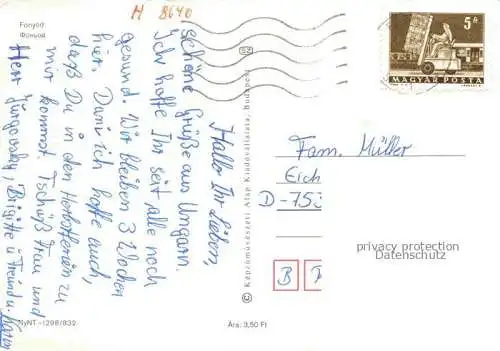 M 8640
Fonyód
Фоньод
Hallo Ihr Lieben,
schöne Grüße aus Ungarn.
Ich hoffe Ihr seit alle noch
gesund. Wir bleiben 3 Wochen
hier. Dani ich hoffe auch,
daß Du in den Herbstferien zu
mir kommst. Tschüß Frau und
Herr Jürgovsky, Brigitte u. Freund u. Katen
NyNT-1298/832
Ára: 3,50 Ft
© Képzőművészeti Alap Kiadóvállalata, Budapest
5 Ft
MAGYAR POSTA
Fam. Müller
Eich
D-753
B
privacy protection
Datenschutz